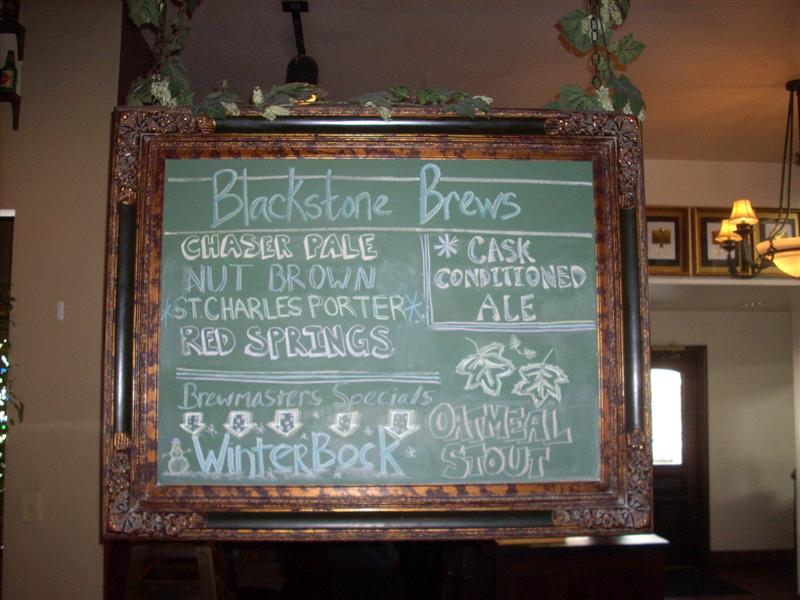 Blackstone Brews
CHASER PALE
NUT BROWN
*ST. CHARLES PORTER*
RED SPRINGS
* CASK
CONDITIONED
ALE
Brewmasters Specials
WinterBock
OATMEAL
STOUT